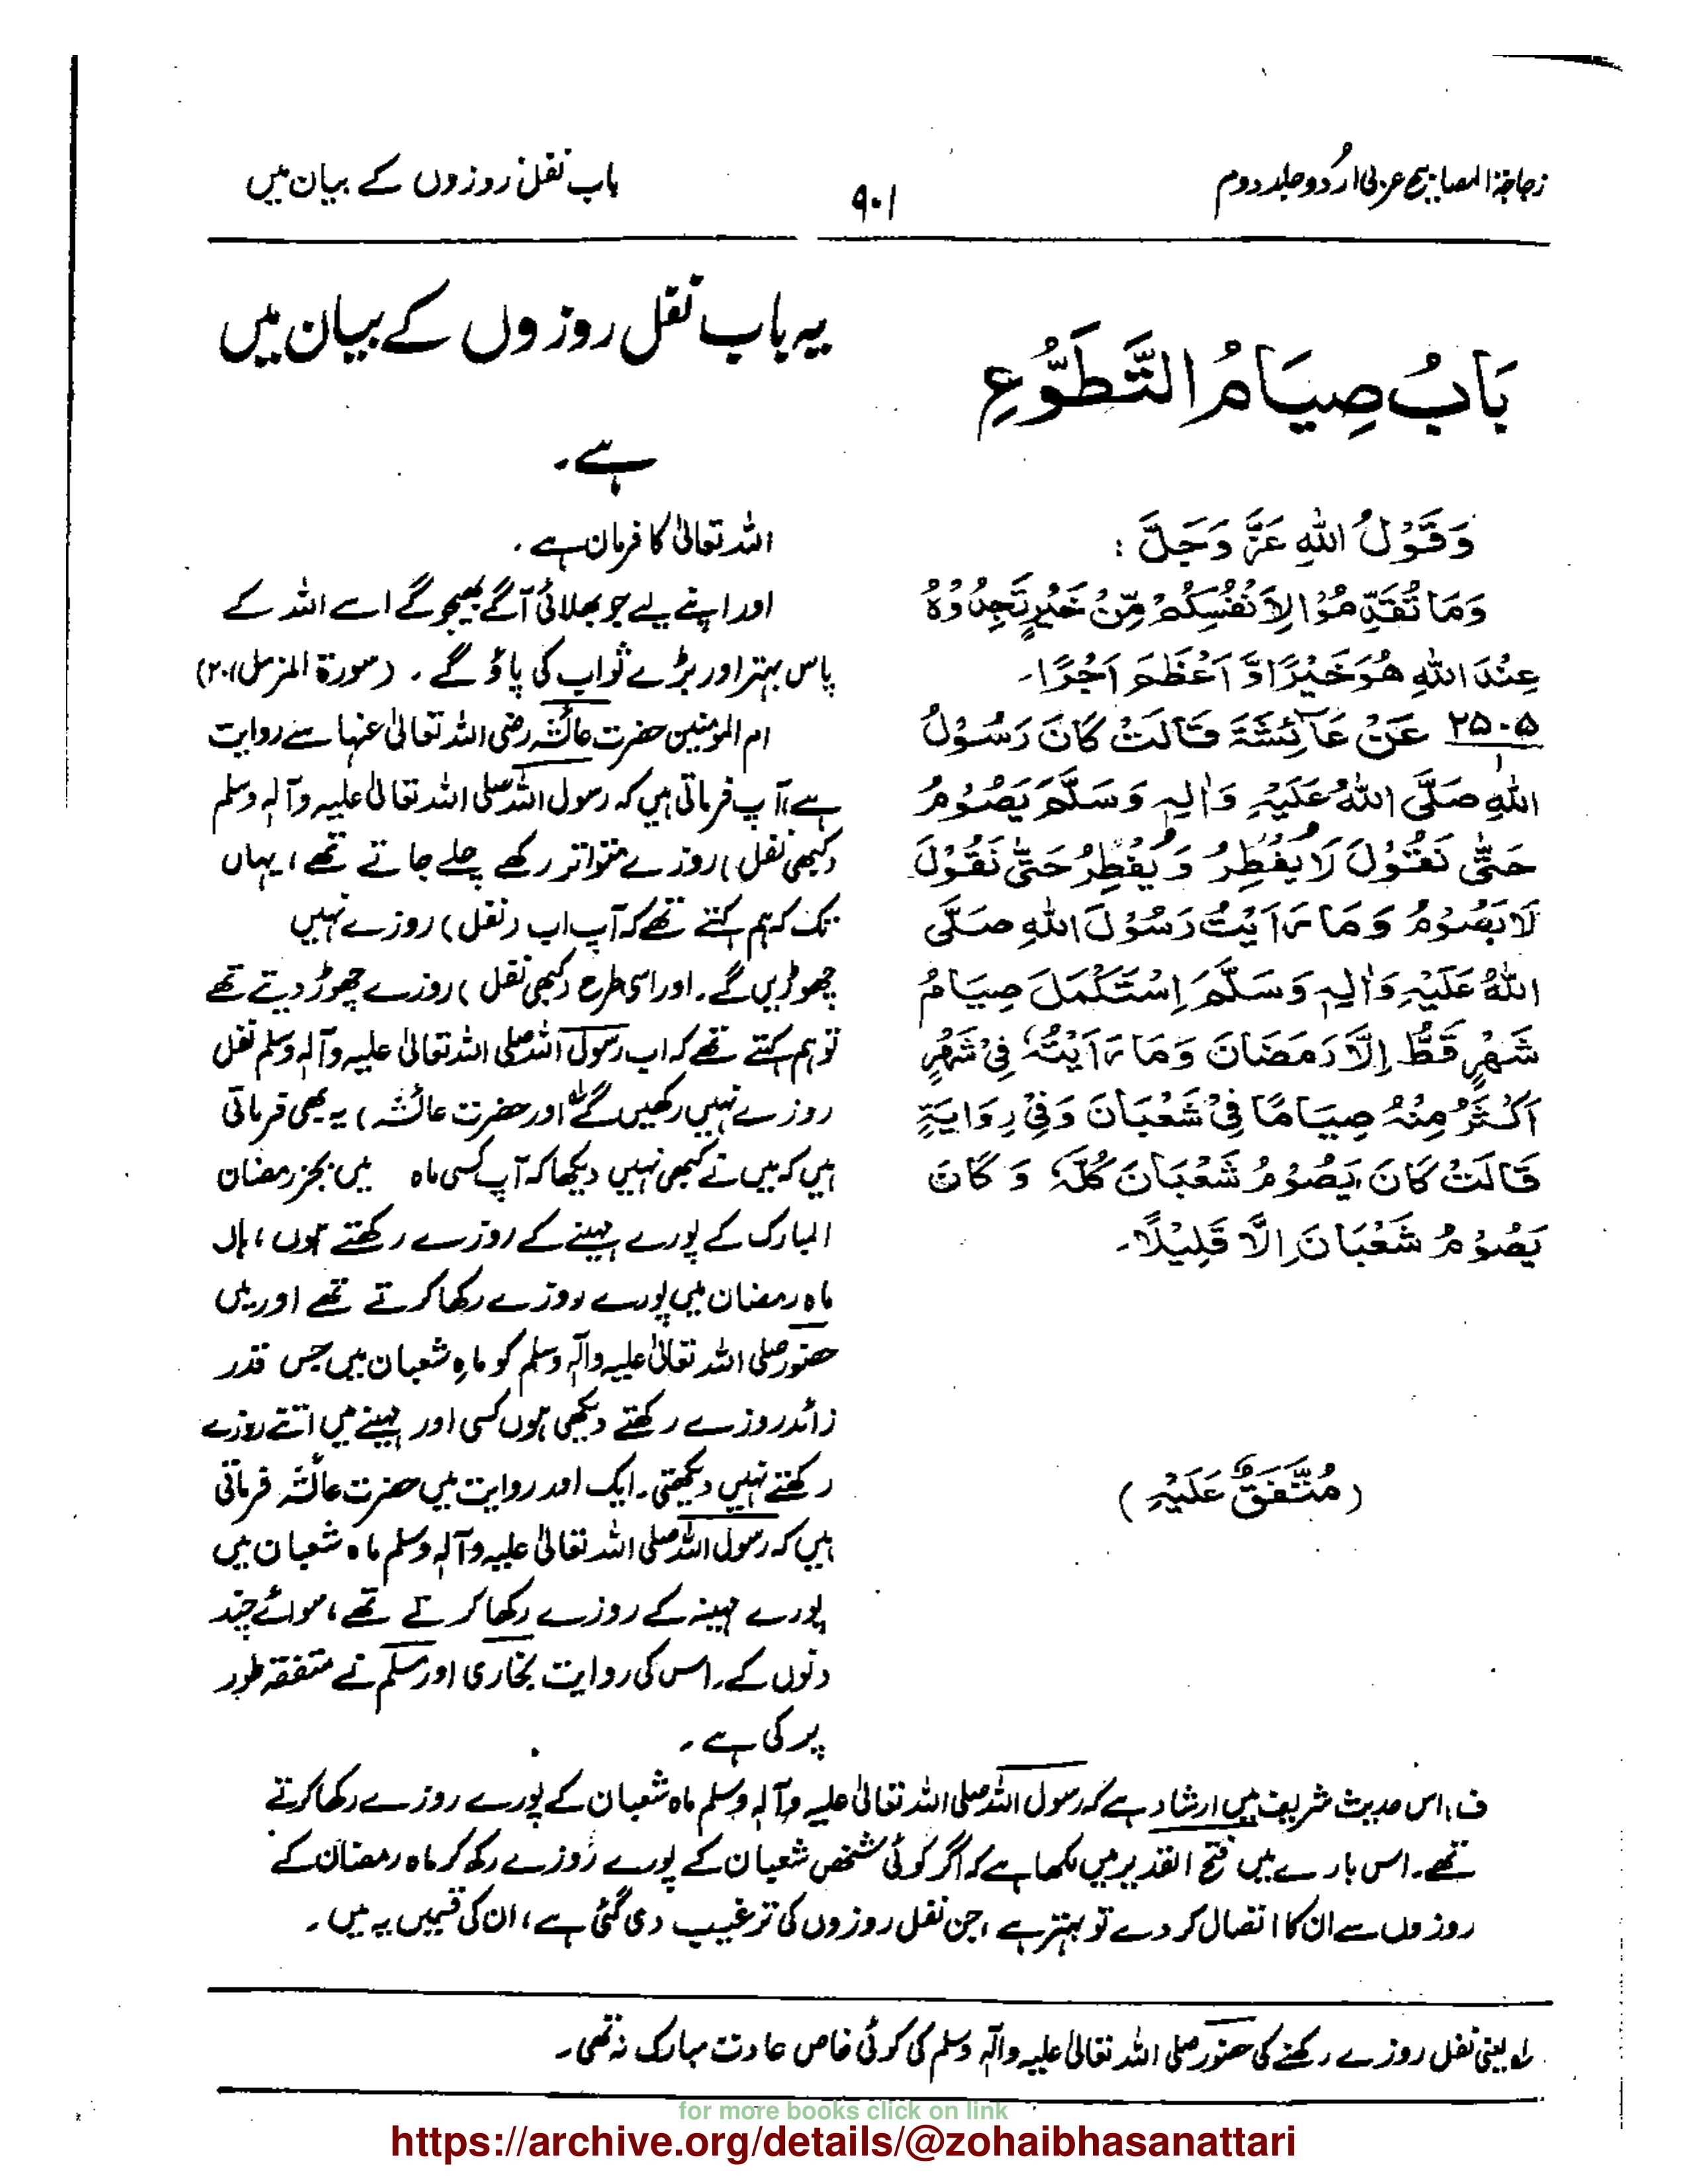 زجاجۃ المصابیح عربی اُردو جلد دوم
۹۰۱
باب نفل روزوں کے بیان میں
بَابُ صِيَامُ التَّطَوُّعِ
وَقَوْلُ اللهِ عَزَّ وَجَلَّ :
وَمَا تُقَدِّمُوْا لِاَنْفُسِكُمْ مِّنْ خَيْرٍ تَجِدُوْهُ
عِنْدَ اللهِ هُوَ خَيْرًا وَّ اَعْظَمَ اَجْرًا۔
۲۵۰۵ عَنْ عَآئِشَةَ قَالَتْ كَانَ رَسُوْلُ
۱
اللهِ صَلَّى اللهُ عَلَيْهِ وَاٰلِهٖ وَسَلَّمَ يَصُوْمُ
حَتّٰى نَقُوْلَ لَا يُفْطِرُ وَ يُفْطِرُ حَتّٰى نَقُوْلَ
لَا يَصُوْمُ وَ مَا رَاَيْتُ رَسُوْلَ اللهِ صَلَّى
اللهُ عَلَيْهِ وَاٰلِهٖ وَسَلَّمَ اِسْتَكْمَلَ صِيَامُ
شَهْرٍ قَطُّ اِلَّا رَمَضَانَ وَمَا رَاَيْتُهٗ فِيْ شَهْرٍ
اَكْثَرَ مِنْهُ صِيَامًا فِيْ شَعْبَانَ وَفِيْ رِوَايَةٍ
قَالَتْ كَانَ يَصُوْمُ شَعْبَانَ كُلَّهٗ وَ كَانَ
يَصُوْمُ شَعْبَانَ اِلَّا قَلِيْلًا۔
(مُتَّفَقٌ عَلَيْهِ)
یہ باب نفل روزوں کے بیان میں
ہے۔
اللہ تعالیٰ کا فرمان ہے۔
اور اپنے لیے جو بھلائی آگے بھیجو گے اسے اللہ کے
پاس بہتر اور بڑے ثواب کی پاؤ گے۔ (سورۃ المزمل، ۲۰)
ام المؤمنین حضرت عائشہ رضی اللہ تعالیٰ عنہا سے روایت
ہے، آپ فرماتی ہیں کہ رسول اللہ صلی اللہ تعالیٰ علیہ وآلہ وسلم
(کبھی نفل) روزے متواتر رکھے چلے جاتے تھے، یہاں
تک کہ ہم کہتے تھے کہ آپ اب (نفل) روزے نہیں
چھوڑیں گے۔ اور اسی طرح (کبھی نفل) روزے چھوڑ دیتے تھے
تو ہم کہتے تھے کہ اب رسول اللہ صلی اللہ تعالیٰ علیہ وآلہ وسلم نفل
روزے نہیں رکھیں گے اور حضرت عائشہ) یہ بھی فرماتی
ہیں کہ میں نے کبھی نہیں دیکھا کہ آپ کسی ماہ میں بجز رمضان
المبارک کے پورے مہینے کے روزے رکھتے ہوں، ہاں
ماہ رمضان میں پورے روزے رکھا کرتے تھے اور میں
حضور صلی اللہ تعالیٰ علیہ وآلہ وسلم کو ماہِ شعبان میں جس قدر
زائد روزے رکھتے دیکھی ہوں کسی اور مہینے میں اتنے روزے
رکھتے نہیں دیکھتی۔ ایک اور روایت میں حضرت عائشہ فرماتی
ہیں کہ رسول اللہ صلی اللہ تعالیٰ علیہ وآلہ وسلم ماہ شعبان میں
پورے مہینہ کے روزے رکھا کرتے تھے، سوائے چند
دنوں کے۔ اس کی روایت بخاری اور مسلم نے متفقہ طور
پر کی ہے۔
ف: اس حدیث شریف میں ارشاد ہے کہ رسول اللہ صلی اللہ تعالیٰ علیہ وآلہ وسلم ماہ شعبان کے پورے روزے رکھا کرتے
تھے۔ اس بارے میں فتح القدیر میں لکھا ہے کہ اگر کوئی شخص شعبان کے پورے روزے رکھ کر ماہ رمضان کے
روزوں سے ان کا اتصال کر دے تو بہتر ہے، جن نفل روزوں کی ترغیب دی گئی ہے، ان کی قسمیں یہ ہیں۔
لہ یعنی نفل روزے رکھنے کی حضور صلی اللہ تعالیٰ علیہ وآلہ وسلم کی کوئی خاص عادت مبارک نہ تھی۔
for more books click on link
https://archive.org/details/@zohaibhasanattari